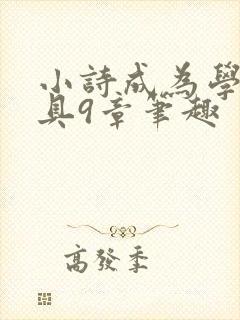 小詩成為學
具9章筆趣
高發季